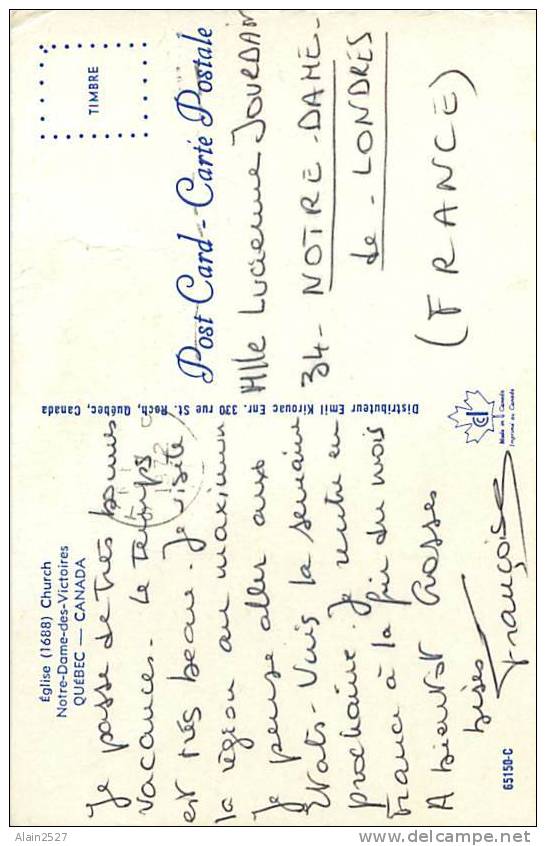 Église (1688) Church
Notre-Dame-des-Victoires
QUÉBEC — CANADA
Je passe de très bonnes
vacances. Le temps
est très beau. Je visite
la région au maximum
Je pense aller aux
Etats-Unis la semaine
prochaine. Je rentre en
France à la fin du mois
A bientôt Grosses
bises
Françoise
65150-C
Distributeur Emil Kirouac Enr. 330 rue St. Roch, Québec, Canada
TIMBRE
Post Card - Carte Postale
Mlle Lucienne JOURDAN
34 - NOTRE-DAME-
de - LONDRES
(FRANCE)
Made in Canada
Imprimé au Canada
Alain2527
www.delcampe.net